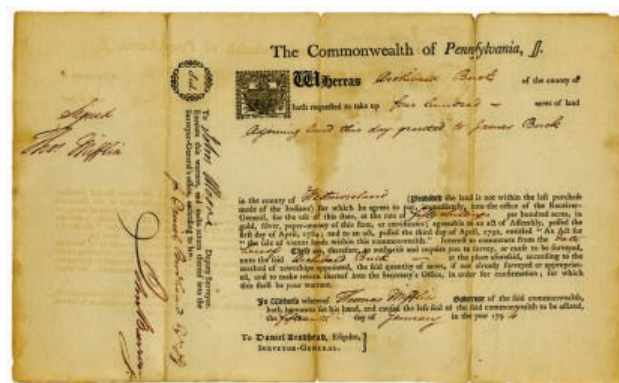 The Commonwealth of Pennſylvania, ſſ.
Whereas Archibald Buck of the county of
hath requested to take up four hundred acres of land
Adjoining land this day granted to James Buck
in the county of Westmoreland (Provided the land is not within the last purchase
made of the Indians) for which he agrees to pay, immediately, into the office of the Receiver-
General, for the use of this state, at the rate of fifty shillings per hundred acres, in
gold, silver, paper-money of this state, or certificates; agreeable to an act of Assembly, passed the
first day of April, 1784; and to an act, passed the third day of April, 1792, entitled "An Act for
the sale of vacant lands within this commonwealth." Interest to commence from the date
hereof These are, therefore, to authorise and require you to survey, or cause to be surveyed,
unto the said Archibald Buck at the place aforesaid, according to the
method of townships appointed, the said quantity of acres, if not already surveyed or appropriat-
ed, and to make return thereof into the Secretary's Office, in order for confirmation; for which
this shall be your warrant.
In Witness whereof Thomas Mifflin Governor of the said commonwealth,
hath hereunto set his hand, and caused the less seal of the said commonwealth to be affixed,
the day of January in the year 1794
To Daniel Brodhead, Esquire,
Surveyor-General.
Signed
Thos Mifflin
To John Moore Deputy Surveyor.
Execute this warrant, and make return thereof into the
Surveyor-General's office, according to law.
Daniel Brodhead